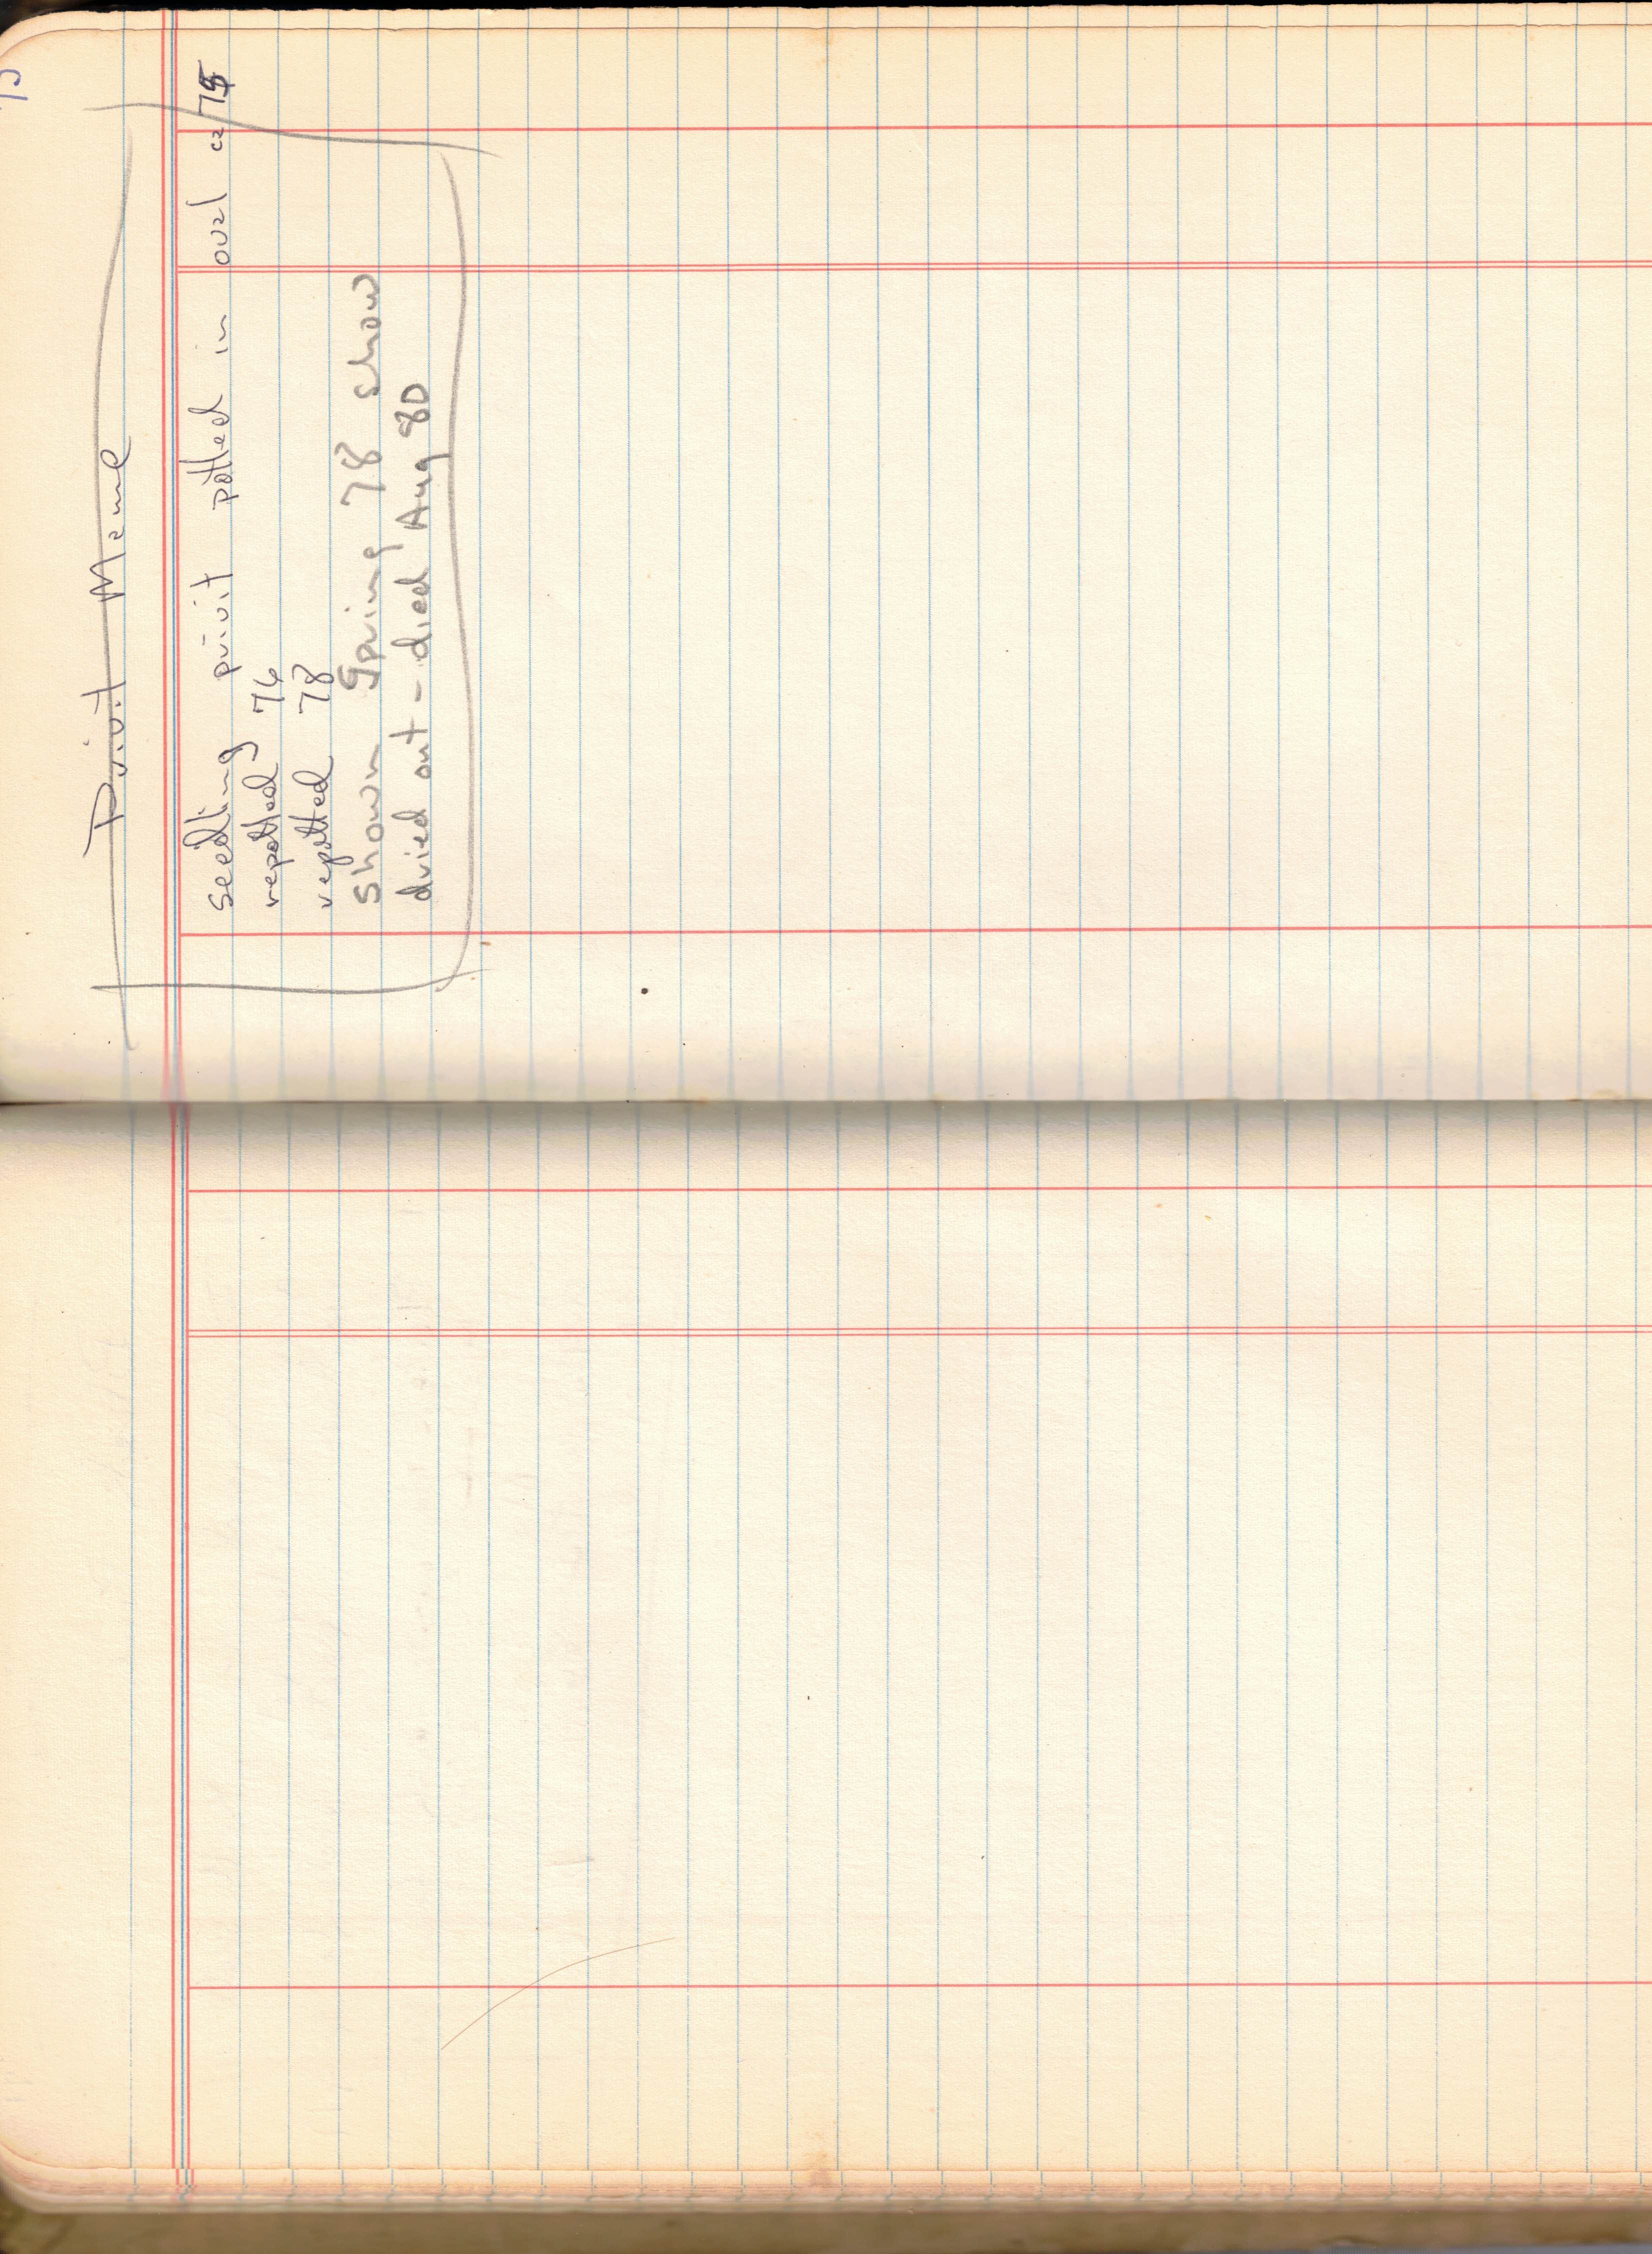 75
Privit Meme
seedling privit potted in oval ca 75
repotted 76
repotted 78
shown Spring 78 show
dried out - died Aug 80